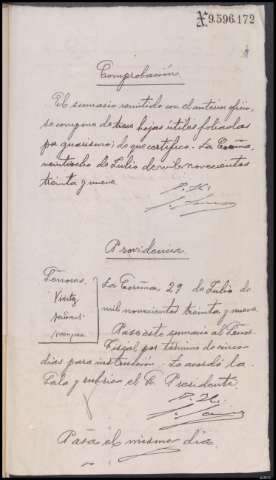 9.596.172
Comprobación
El sumario remitido con el anterior oficio,
se compone de hojas útiles foliadas
por guarismos; de que certifico. La Coruña
veintiocho de Julio de mil novecientos
treinta y nueve
Providencia
Señores
La Coruña 29 de Julio de
mil novecientos treinta y nueve
Pase este sumario al Señor
Fiscal por término de cinco
dias para instrucción. Lo acordó la
Sala y rubrica el Sr. Presidente.
Pasa el mismo dia.